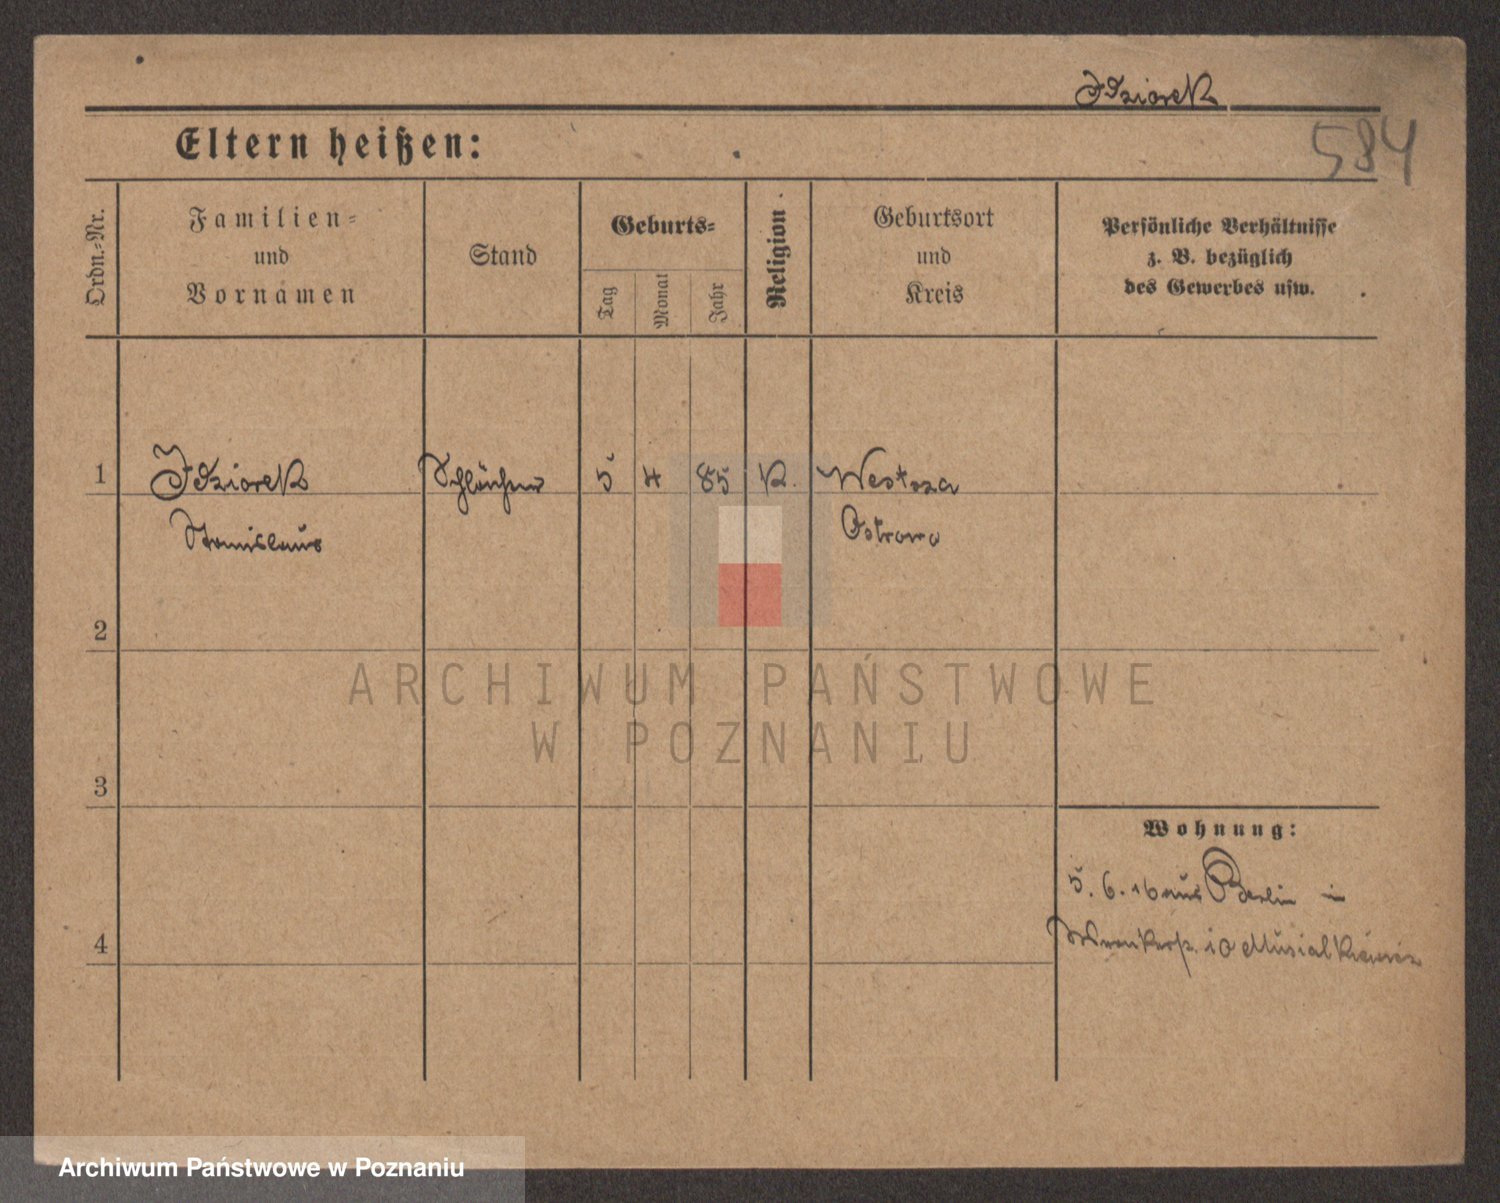 Idziorek
584
Eltern heißen:
Ordn.-Nr.
Familien-
und
Vornamen
Stand
Geburts-
Tag
Monat
Jahr
Religion
Geburtsort
und
Kreis
Persönliche Verhältnisse
z. B. bezüglich
des Gewerbes usw.
1 Idziorek 5 4 85 K.
Stanislaus Ostrowo
2
3
4
Wohnung:
5. 6. 16 aus Berlin in
10
ARCHIWUM PAŃSTWOWE
W POZNANIU
Archiwum Państwowe w Poznaniu